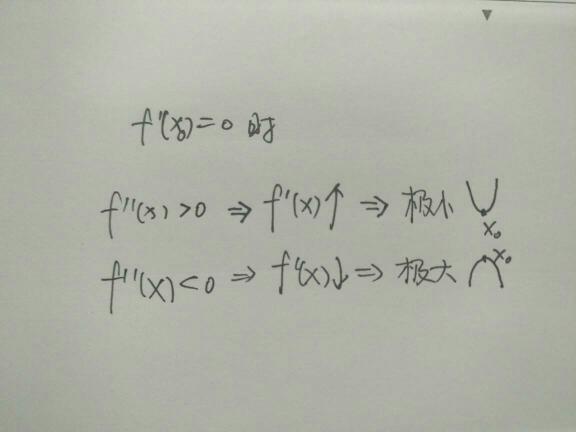 f'(x₀)=0 时
f''(x)>0 ⇒ f'(x)↑ ⇒ 极小 x₀
f''(x)<0 ⇒ f'(x)↓ ⇒ 极大 x₀